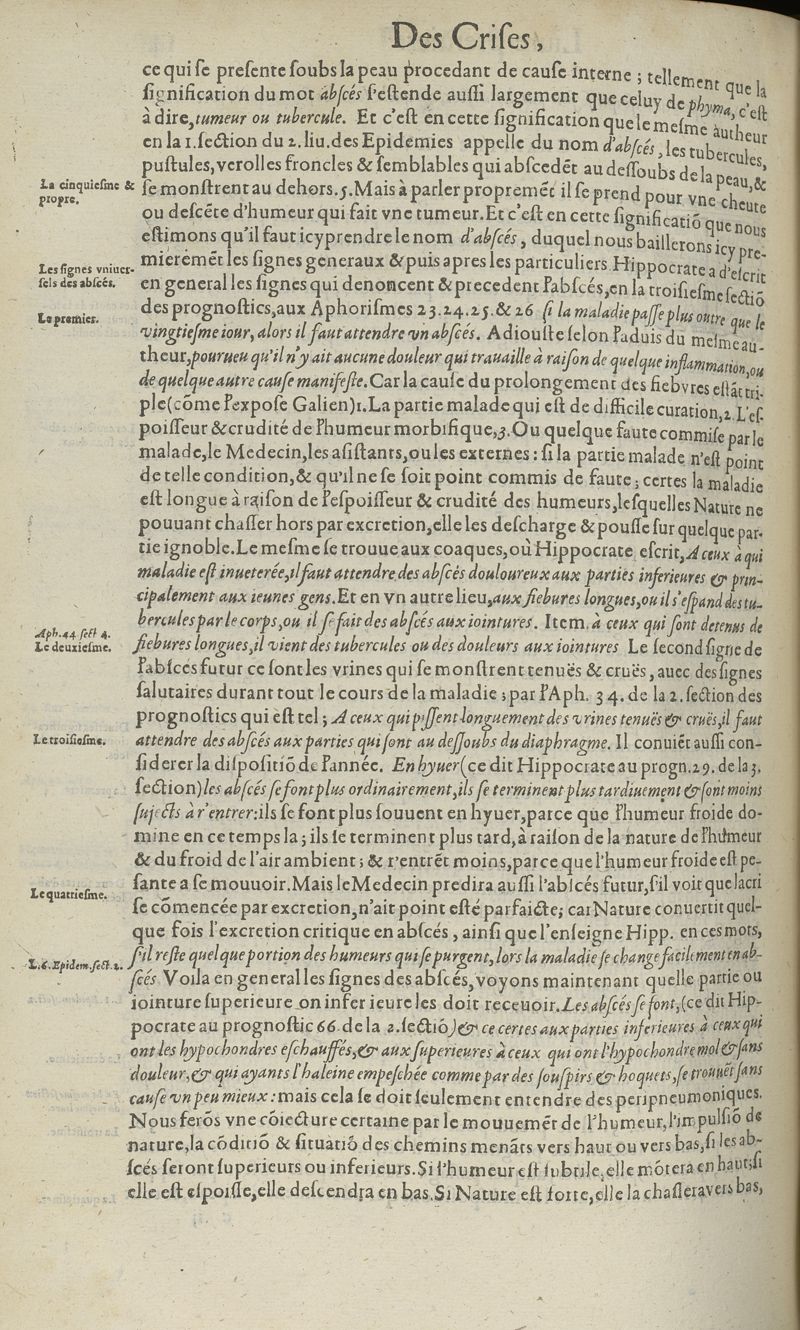 Des Criſes,
ce qui ſe preſente ſoubs la peau procedant de cauſe interne ; tellement que la
ſignification du mot abſcés ſ'eſtende auſſi largement que celuy de phyma, c'eſt
à dire, tumeur ou tubercule. Et c'eſt en cette ſignification que le meſme autheur
en la 1. ſection du 2. liu. des Epidemies appelle du nom d'abſcés, les tubercules,
puſtules, verolles froncles & ſemblables qui abſcedẽt au deſſoubs de la peau, &
La cinquieſme & propre.
ſe monſtrent au dehors. 5. Mais à parler propremẽt il ſe prend pour vne cheute
ou deſcẽte d'humeur qui fait vne tumeur. Et c'eſt en cette ſignificatiõ que nous
eſtimons qu'il faut icy prendre le nom d'abſcés, duquel nous baillerons icy pre-
Les ſignes vniuer-
ſels des abſcés.
mieremẽt les ſignes generaux & puis apres les particuliers Hippocrate a d'eſcrit
en general les ſignes qui denoncent & precedent l'abſcés, en la troiſieſme ſectiõ
Le premier.
des prognoſtics, aux Aphoriſmes 23. 24. 25. & 26 ſi la maladie paſſe plus outre que le
vingtieſme iour, alors il faut attendre vn abſcés. Adiouſte ſelon l'aduis du meſme au-
theur, pourueu qu'il n'y ait aucune douleur qui trauaille à raiſon de quelque inflammation, ou
de quelque autre cauſe manifeſte. Car la cauſe du prolongement des fiebvres eſtãt tri-
ple (cõme l'expoſe Galien) 1. La partie malade qui eſt de difficile curation, 2. L'eſ-
poiſſeur & crudité de l'humeur morbifique, 3. Ou quelque faute commiſe par le
malade, le Medecin, les aſiſtants, ou les externes : ſi la partie malade n'eſt point
de telle condition, & qu'il ne ſe ſoit point commis de faute ; certes la maladie
eſt longue à raiſon de l'eſpoiſſeur & crudité des humeurs, leſquelles Nature ne
pouuant chaſſer hors par excretion, elle les deſcharge & pouſſe ſur quelque par-
tie ignoble. Le meſme ſe trouue aux coaques, où Hippocrate eſcrit, A ceux à qui
maladie eſt inueterée, il faut attendre des abſcés douloureux aux parties inferieures & prin-
cipalement aux ieunes gens. Et en vn autre lieu, aux fiebures longues, ou il s'eſpand des tu-
bercules par le corps, ou il ſe fait des abſcés aux iointures. Item à ceux qui ſont detenus de
Aph. 44 ſect 4.
Le deuxieſme.
fiebures longues, il vient des tubercules ou des douleurs aux iointures Le ſecond ſigne de
l'abſces futur ce ſont les vrines qui ſe monſtrent tenuës & cruës, auec des ſignes
ſalutaires durant tout le cours de la maladie ; par l'Aph. 34. de la 2. ſection des
prognoſtics qui eſt tel ; A ceux qui piſſent longuement des vrines tenuës & cruës, il faut
Le troiſieſme.
attendre des abſcés aux parties qui ſont au deſſoubs du diaphragme. Il conuiẽt auſſi con-
ſiderer la diſpoſitiõ de l'année. En hyuer (ce dit Hippocrate au progn. 29. de la 3.
ſection) les abſcés ſe font plus ordinairement, ils ſe terminent plus tardiuement & ſont moins
ſujects à r'entrer: ils ſe font plus ſouuent en hyuer, parce que l'humeur froide do-
mine en ce temps la ; ils ſe terminent plus tard, à raiſon de la nature de l'humeur
& du froid de l'air ambient ; & r'entrẽt moins, parce que l'humeur froide eſt pe-
Le quatrieſme.
ſante a ſe mouuoir. Mais le Medecin predira auſſi l'abſcés futur, ſ'il voit que la cri
ſe cõmencée par excretion, n'ait point eſté parfaicte; car Nature conuertit quel-
que fois l'excretion critique en abſcés, ainſi que l'enſeigne Hipp. en ces mots,
L. 6. Epidem. ſect. 2.
ſ'il reſte quelque portion des humeurs qui ſe purgent, lors la maladie ſe change facilement en ab-
ſcés Voila en general les ſignes des abſcés, voyons maintenant quelle partie ou
iointure ſuperieure on inferieure les doit receuoir. Les abſcés ſe font, (ce dit Hip-
pocrate au prognoſtic 66. de la 2. ſectiõ) & ce certes aux parties inferieures à ceux qui
ont les hypochondres eſchauffés, & aux ſuperieures à ceux qui ont l'hypochondre mol & ſans
douleur, & qui ayants l'haleine empeſchée comme par des ſouſpirs & hoquets, ſe trouuẽt ſans
cauſe vn peu mieux : mais cela ſe doit ſeulement entendre des peripneumoniques.
Nous ferõs vne cõiecture certaine par le mouuemẽt de l'humeur, l'impulſiõ de
nature, la cõditiõ & ſituatiõ des chemins menãts vers haut ou vers bas, ſi les ab-
ſcés ſeront ſuperieurs ou inferieurs. Si l'humeur eſt ſubtile, elle mõtera en haut; ſi
elle eſt eſpoiſſe, elle deſcendra en bas. Si Nature eſt forte, elle la chaſſera vers bas,